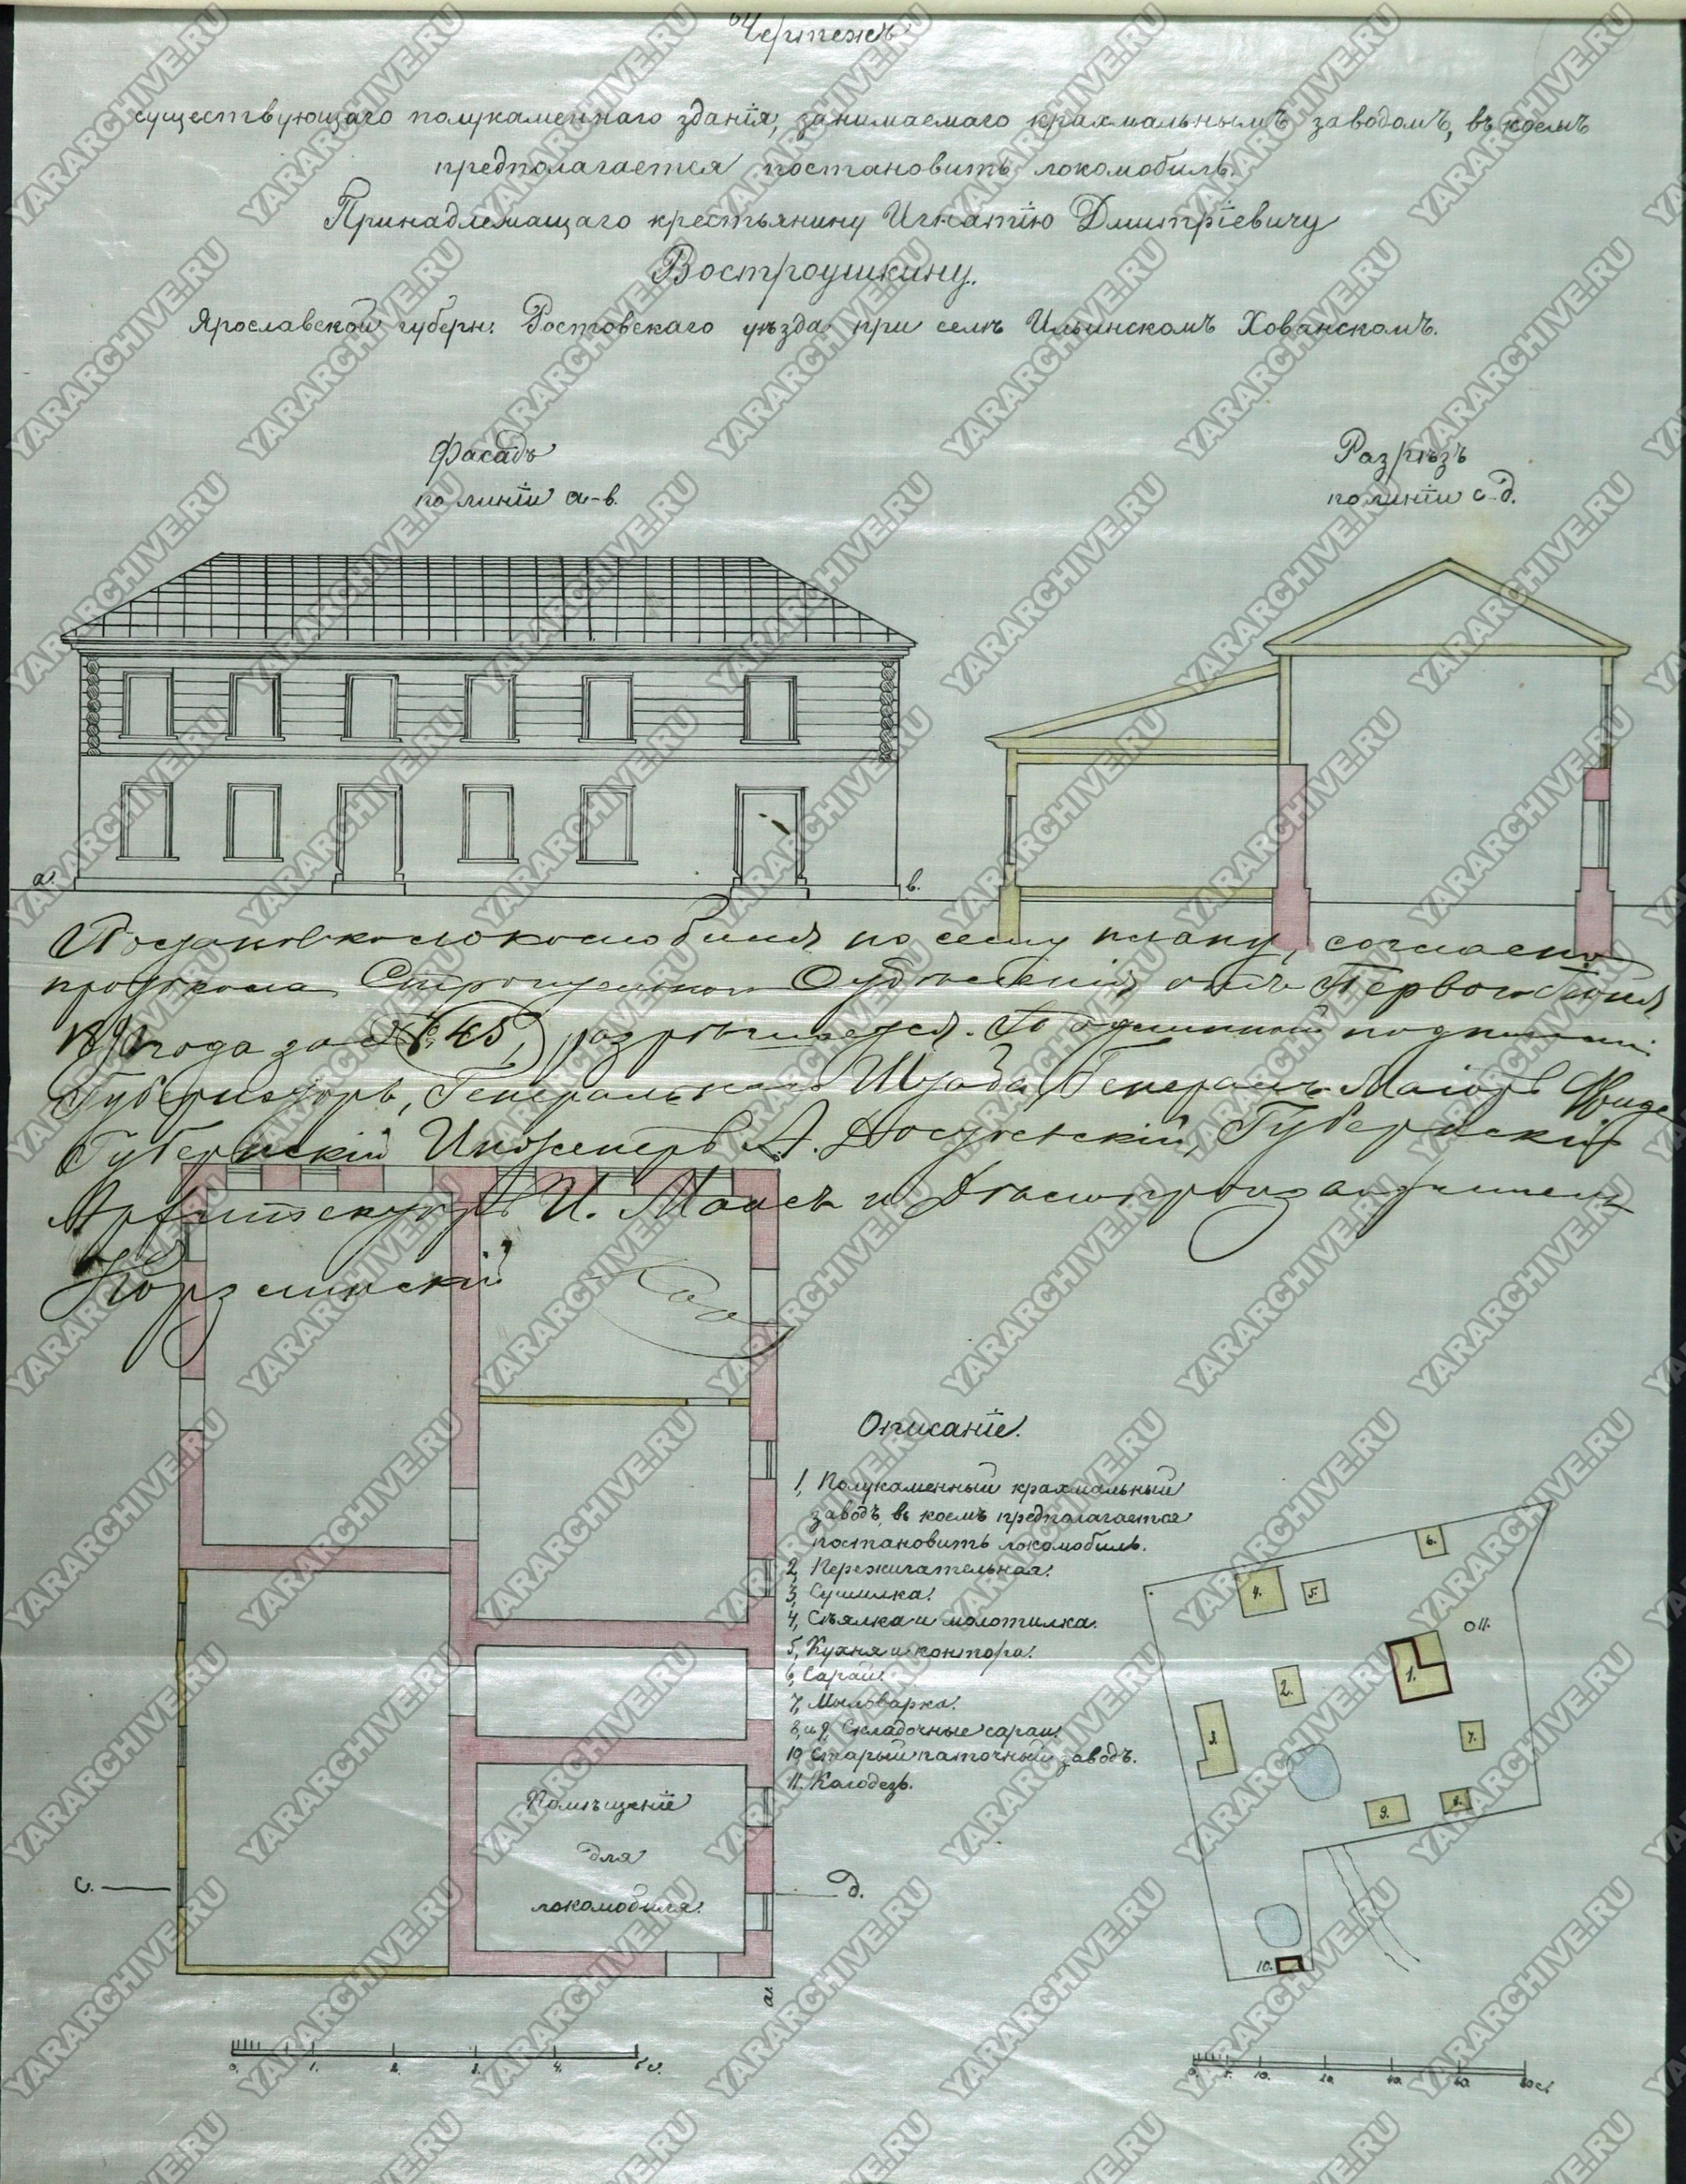 Чертежъ
существующаго полукаменнаго зданія, занимаемаго крахмальнымъ заводомъ, въ коемъ
предполагается постановить локомобиль.
Принадлежащаго крестьянину Игнатію Дмитріевичу
Вострoушкину.
Ярославской губерн: Ростовскаго уѣзда при селѣ Ильинскомъ Хованскомъ.
Фасадъ
по линіи а-в.
Разрѣзъ
по линіи с-д.
а.
в.
по сему плану, согласно
протокола Строительнаго Отдѣленія отъ Перваго Іюня
года за № 45, разрѣшается. Подлинный подписали:
Губернаторъ, Генеральнаго Штаба, Генералъ-Маіоръ Фриде
Губернскій Инженеръ А. Достоевскій, Губернскій
Архитекторъ И. Маасъ и Дѣлопроизводитель
Описаніе.
1, Полукаменный крахмальный
заводъ, въ коемъ предполагается
постановить локомобиль.
2, Пережигательная.
3, Сушилка.
4, Сѣялка и молотилка.
5, Кухня и контора.
6, Сарай.
7, Мыловарка.
8, и 9, Складочные сараи.
10, Старый паточный заводъ.
11. Колодезь.
Помѣщеніе
для
локомобиля.
с.
д.
а.
6.
4.
5.
11.
1.
2.
3.
7.
9.
8.
10.
0. 1. 2. 3. 4. 5 с.
0. 5. 10. 20.
YARARCHIVE.RU